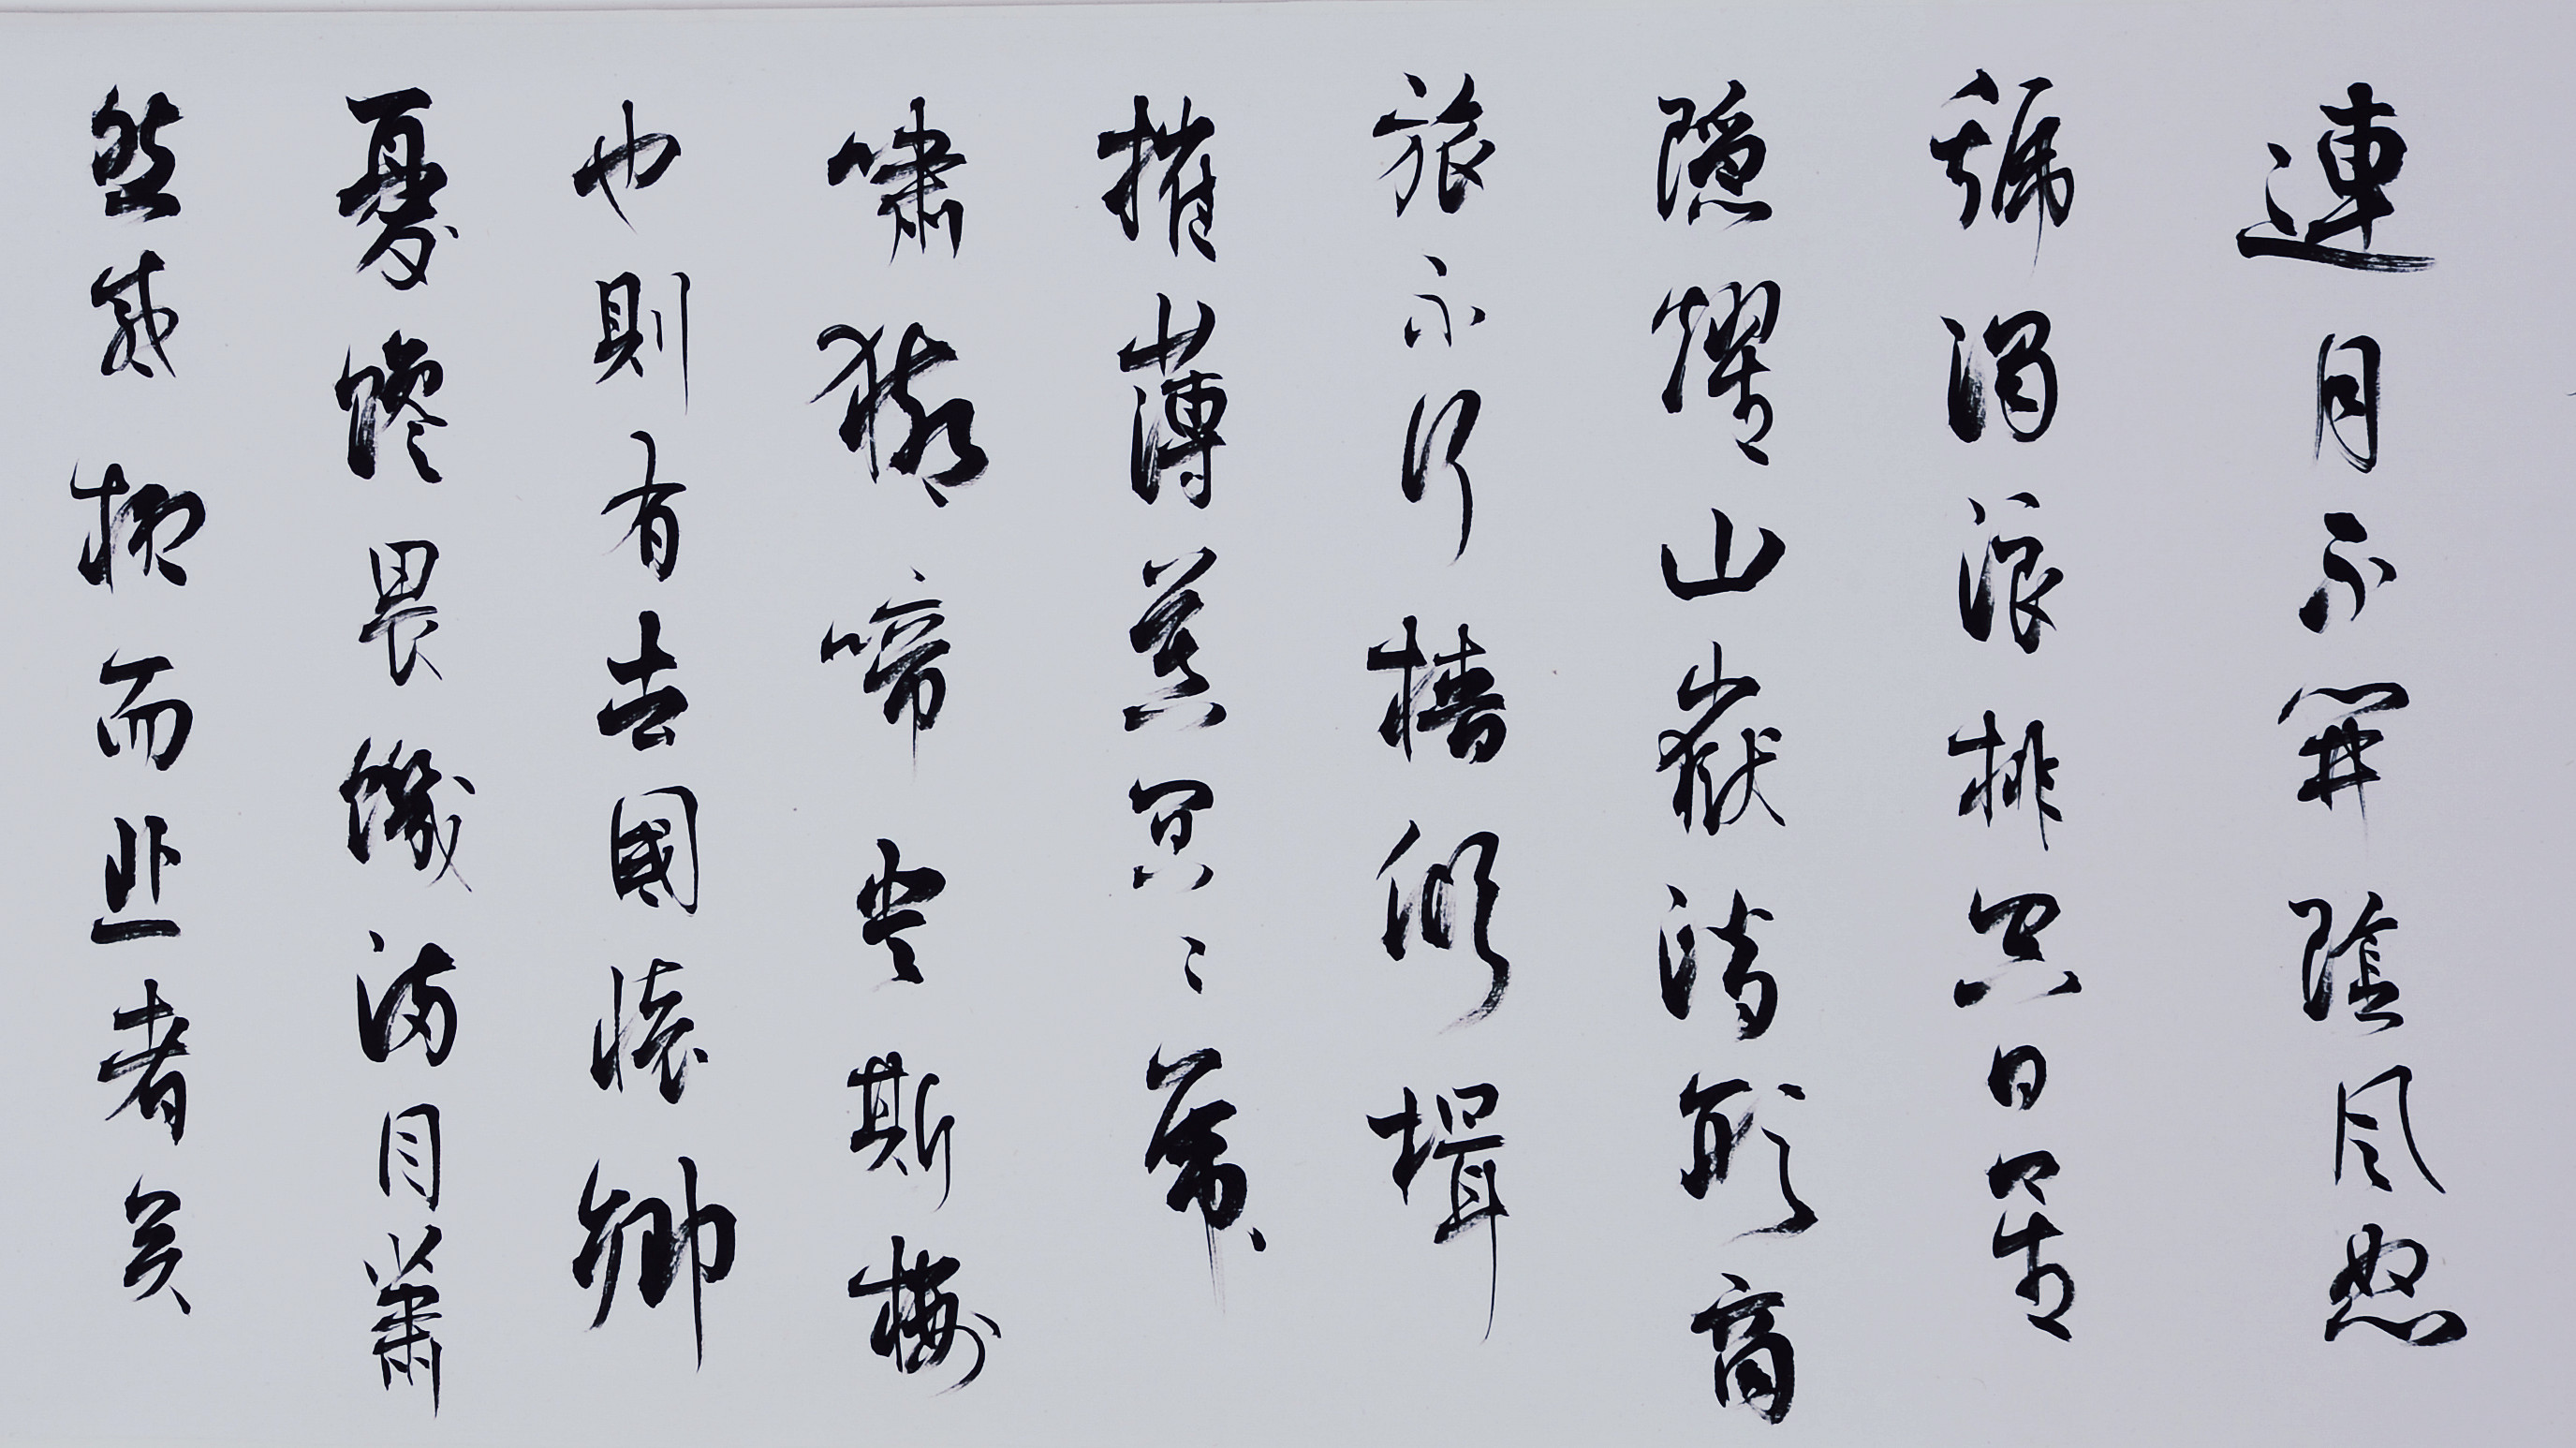 連月不開陰風怒
號濁浪排空日星
隱燿山嶽潛形商
旅不行檣傾楫
摧薄暮冥〻虎
嘯猿啼登斯樓
也則有去國懷鄉
憂讒畏譏滿目蕭
然感極而悲者矣